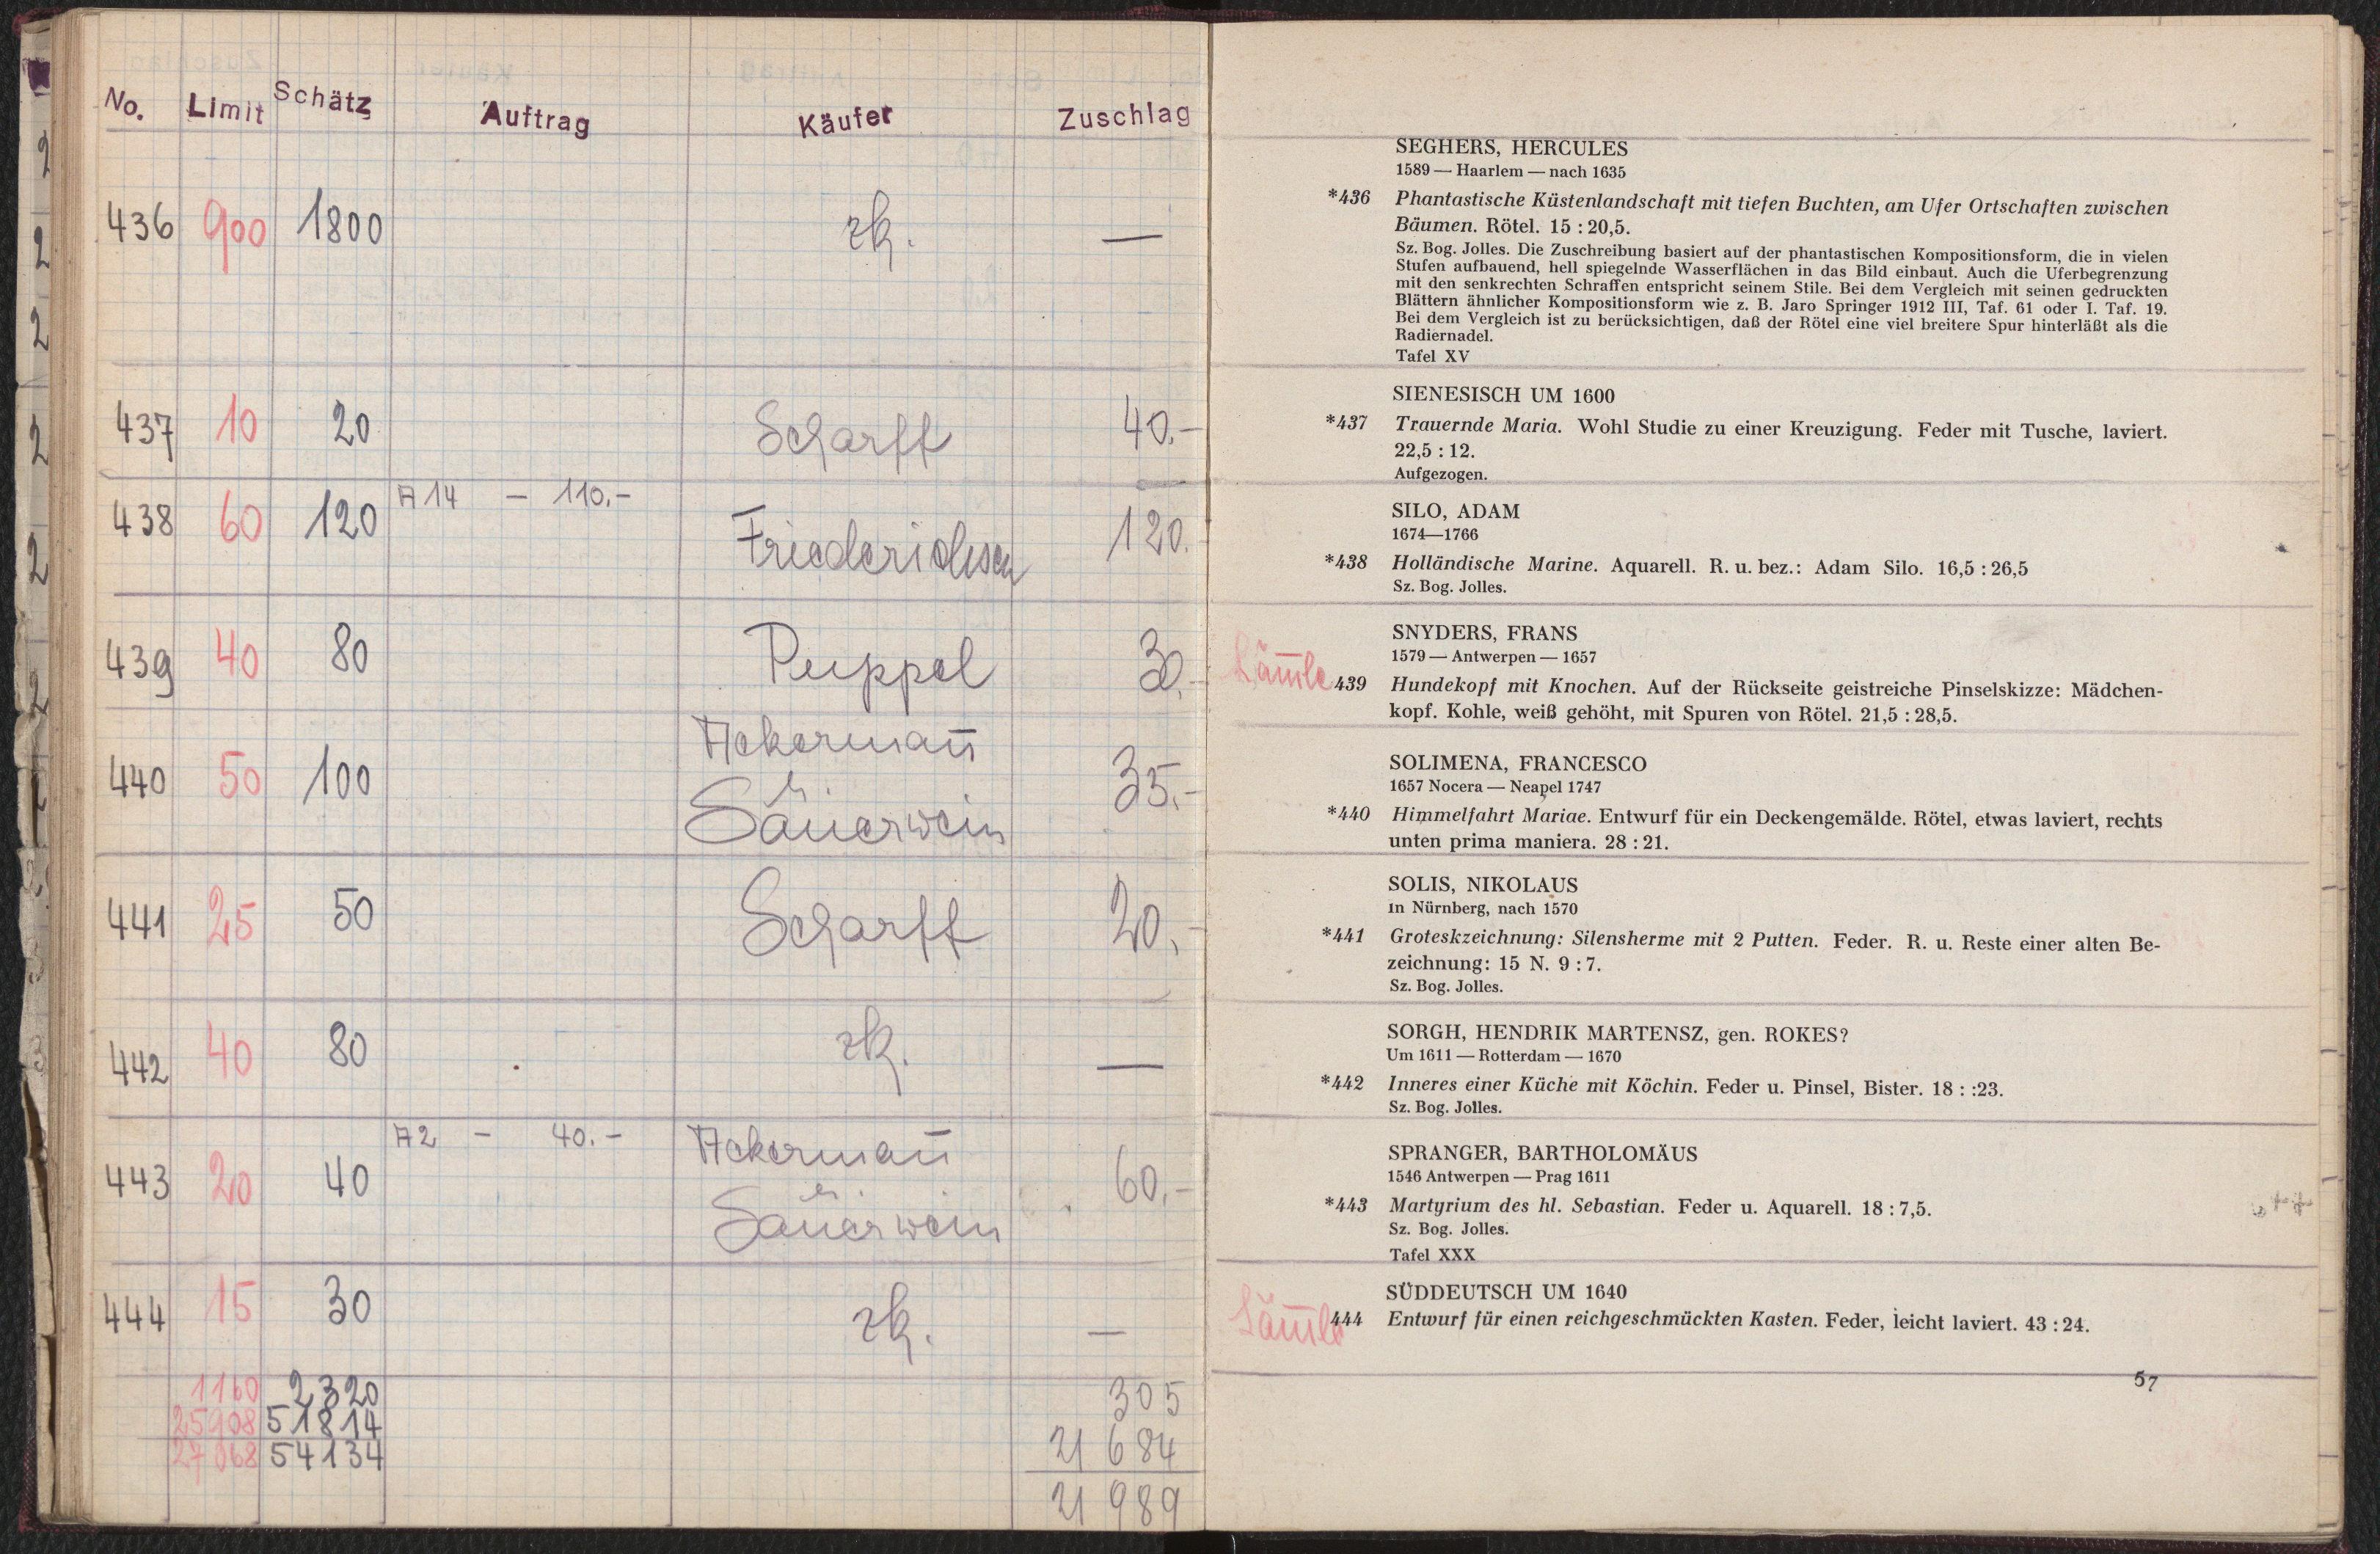 No. Limit Schätz Auftrag Käufer Zuschlag
436 900 1800 zk. —
437 10 20 Scharff 40.-
438 60 120 A 14 — 110.- Friederichsen 120.
439 40 80 Puppel 30.-
440 50 100 Ackermañ u. Sauerwein 35.-
441 25 50 Scharff 20.-
442 40 80 zk. —
443 20 40 A 2 — 40.- Ackermañ u. Sauerwein 60.-
444 15 30 zk. —
1160 2320 305
25908 51814 21 684
27068 54134 21 989
SEGHERS, HERCULES
1589 — Haarlem — nach 1635
*436 Phantastische Küstenlandschaft mit tiefen Buchten, am Ufer Ortschaften zwischen
Bäumen. Rötel. 15 : 20,5.
Sz. Bog. Jolles. Die Zuschreibung basiert auf der phantastischen Kompositionsform, die in vielen
Stufen aufbauend, hell spiegelnde Wasserflächen in das Bild einbaut. Auch die Uferbegrenzung
mit den senkrechten Schraffen entspricht seinem Stile. Bei dem Vergleich mit seinen gedruckten
Blättern ähnlicher Kompositionsform wie z. B. Jaro Springer 1912 III, Taf. 61 oder I. Taf. 19.
Bei dem Vergleich ist zu berücksichtigen, daß der Rötel eine viel breitere Spur hinterläßt als die
Radiernadel.
Tafel XV
SIENESISCH UM 1600
*437 Trauernde Maria. Wohl Studie zu einer Kreuzigung. Feder mit Tusche, laviert.
22,5 : 12.
Aufgezogen.
SILO, ADAM
1674—1766
*438 Holländische Marine. Aquarell. R. u. bez.: Adam Silo. 16,5 : 26,5
Sz. Bog. Jolles.
SNYDERS, FRANS
1579 — Antwerpen — 1657
439 Hundekopf mit Knochen. Auf der Rückseite geistreiche Pinselskizze: Mädchen-
kopf. Kohle, weiß gehöht, mit Spuren von Rötel. 21,5 : 28,5.
SOLIMENA, FRANCESCO
1657 Nocera — Neapel 1747
*440 Himmelfahrt Mariae. Entwurf für ein Deckengemälde. Rötel, etwas laviert, rechts
unten prima maniera. 28 : 21.
SOLIS, NIKOLAUS
in Nürnberg, nach 1570
*441 Groteskzeichnung: Silensherme mit 2 Putten. Feder. R. u. Reste einer alten Be-
zeichnung: 15 N. 9 : 7.
Sz. Bog. Jolles.
SORGH, HENDRIK MARTENSZ, gen. ROKES?
Um 1611 — Rotterdam — 1670
*442 Inneres einer Küche mit Köchin. Feder u. Pinsel, Bister. 18 : :23.
Sz. Bog. Jolles.
SPRANGER, BARTHOLOMÄUS
1546 Antwerpen — Prag 1611
*443 Martyrium des hl. Sebastian. Feder u. Aquarell. 18 : 7,5.
Sz. Bog. Jolles.
Tafel XXX
SÜDDEUTSCH UM 1640
444 Entwurf für einen reichgeschmückten Kasten. Feder, leicht laviert. 43 : 24.
57